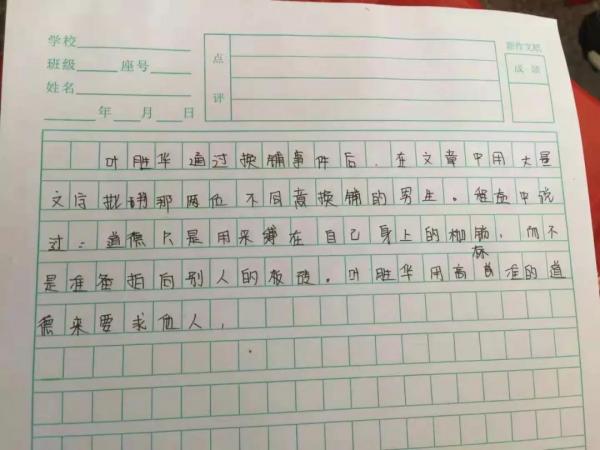 学校
班级 座号
姓名
年 月 日
点评
新作文纸
成绩
叶胜华通过换铺事件后,在文章中用大量
文字批评那两位不同意换铺的男生。程虚中说
过:道德只是用来缚在自己身上的枷锁,而不
是准备指向别人的板砖。叶胜华用高标准的道
德来要求他人,